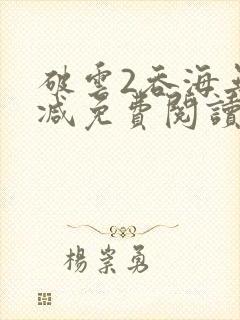 破雲2吞海無刪
減免費閱讀
楊崇勇